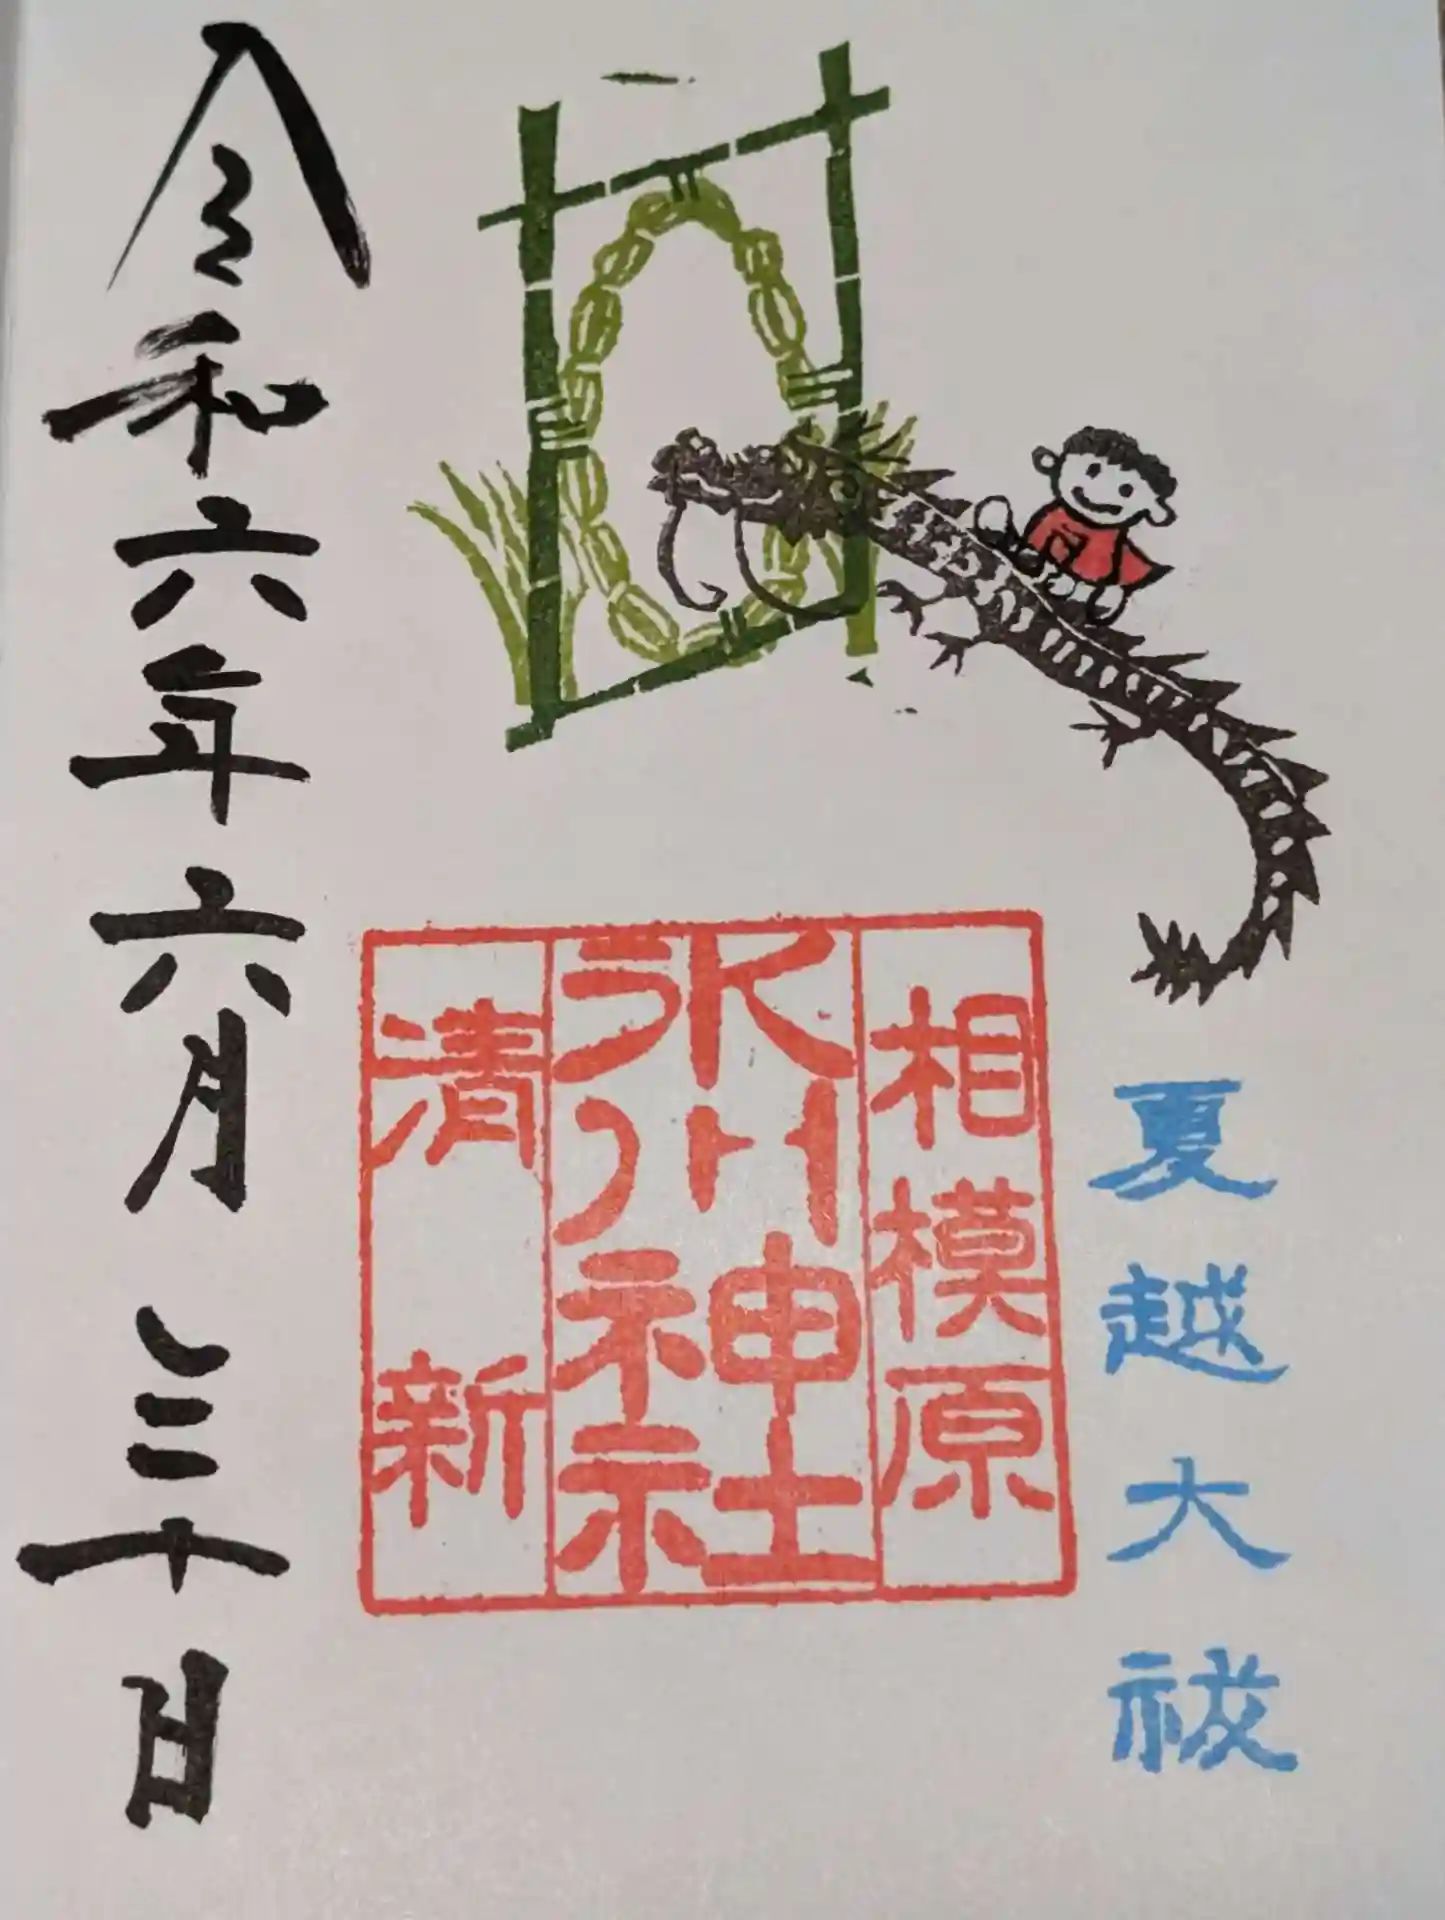 夏越大祓
相模原
氷川神社
清新
令和六年六月三十日